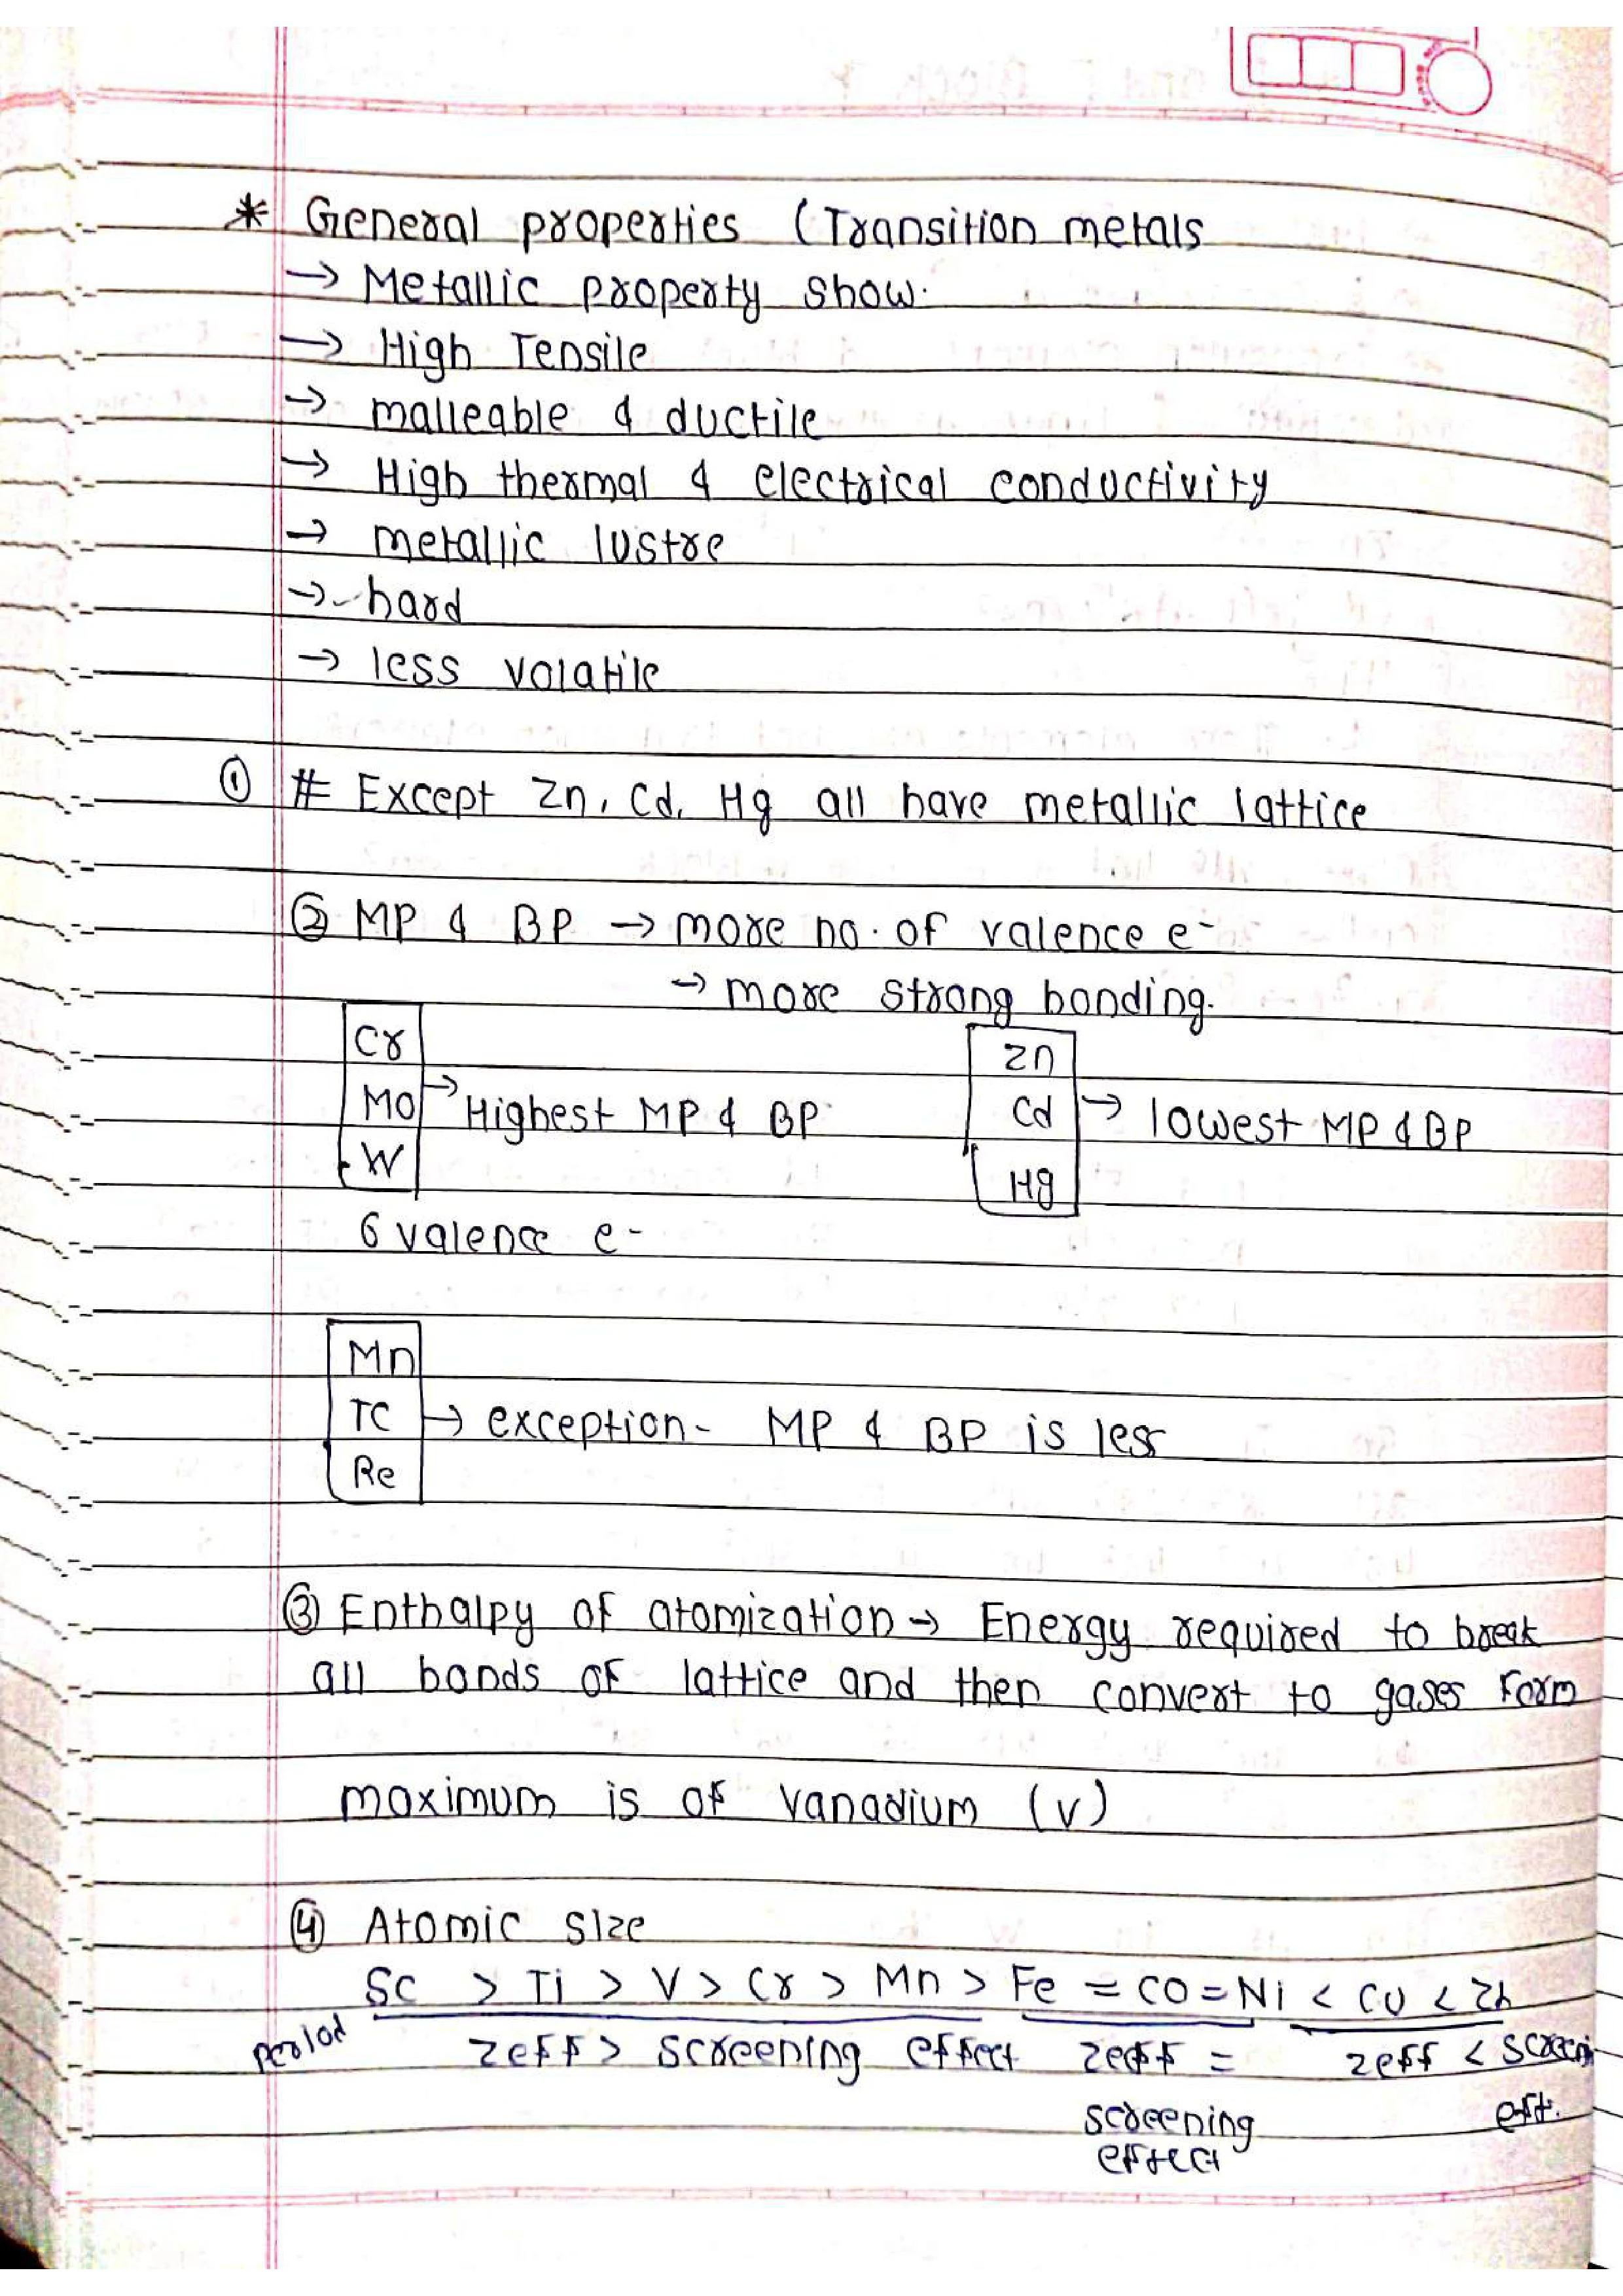 * General properties (Transition metals
→ Metallic property show.
→ High Tensile
→ malleable & ductile
→ High thermal & electrical conductivity
→ metallic lustre
→ hard
→ less volatile
① # Except Zn, Cd, Hg all have metallic lattice
② MP & BP → more no. of valence e-
→ more strong bonding.
Cr
Mo → Highest MP & BP
W
6 valence e-
Zn
Cd → lowest MP & BP
Hg
Mn
TC → exception - MP & BP is less
Re
③ Enthalpy of atomization → Energy required to break
all bonds of lattice and then convert to gases form
maximum is of vanadium (V)
④ Atomic size
Sc > Ti > V > Cr > Mn > Fe = CO = Ni < CU < Zn
period zeff > screening effect zeff = zeff < screenin
screening eff.
effect